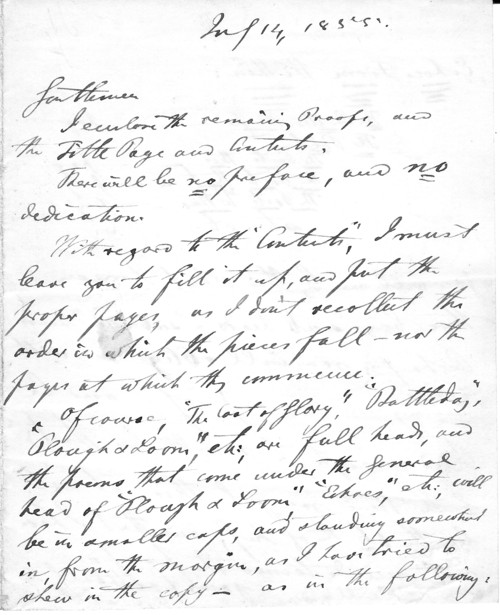 July 14, 1855.
Gentlemen
I enclose the remaining Proofs, and
the Title Page and Contents.
There will be no preface, and no
dedication.
With regard to the "Contents", I must
leave you to fill it up, and put the
proper pages, as I don't recollect the
order in which the pieces fall - nor the
pages at which they commence.
Of course, "The Coat of Glory", "Battleday",
"Plough & Loom", etc; are full heads, and
the poems that come under the general
head of "Plough & Loom", "Echoes", etc:, will
be in smaller caps, and standing somewhat
in, from the margin, as I have tried to
shew in the copy - as in the following: